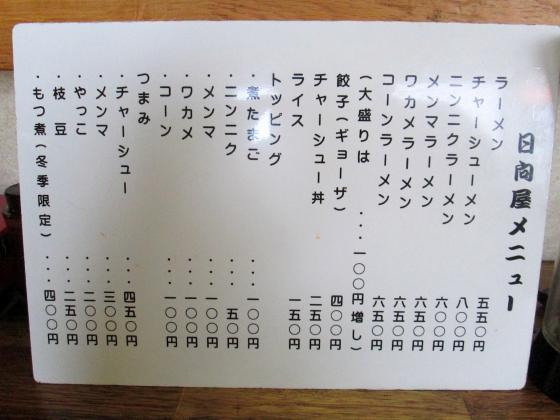 日向屋メニュー
ラーメン 五五〇円
チャーシューメン 八〇〇円
ニンニクラーメン 六〇〇円
メンマラーメン 六五〇円
ワカメラーメン 六五〇円
コーンラーメン 六五〇円
(大盛りは ・・・一〇〇円増し)
餃子(ギョーザ) 四〇〇円
チャーシュー丼 二五〇円
ライス 一五〇円
トッピング
・煮たまご ・・・一〇〇円
・ニンニク ・・・五〇円
・メンマ ・・・一〇〇円
・ワカメ ・・・一〇〇円
・コーン ・・・一〇〇円
つまみ
・チャーシュー ・・・四五〇円
・メンマ ・・・三〇〇円
・やっこ ・・・二〇〇円
・枝 豆 ・・・二五〇円
・もつ煮(冬季限定) ・・・四〇〇円